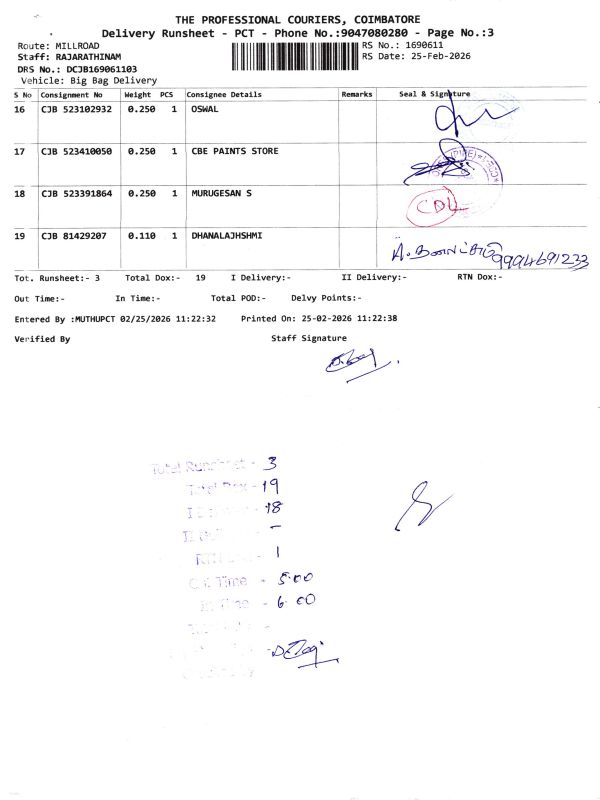 THE PROFESSIONAL COURIERS, COIMBATORE
Delivery Runsheet - PCT - Phone No.:9047080280 - Page No.:3
Route: MILLROAD RS No.: 1690611
Staff: RAJARATHINAM RS Date: 25-Feb-2026
DRS No.: DCJB169061103
Vehicle: Big Bag Delivery
S No Consignment No Weight PCS Consignee Details Remarks Seal & Signature
16 CJB 523102932 0.250 1 OSWAL
17 CJB 523410050 0.250 1 CBE PAINTS STORE
18 CJB 523391864 0.250 1 MURUGESAN S CDL
19 CJB 81429207 0.110 1 DHANALAJHSHMI 9994691233
Tot. Runsheet:- 3 Total Dox:- 19 I Delivery:- II Delivery:- RTN Dox:-
Out Time:- In Time:- Total POD:- Delvy Points:-
Entered By :MUTHUPCT 02/25/2026 11:22:32 Printed On: 25-02-2026 11:22:38
Verified By Staff Signature
Total Runsheet - 3
Total Dox - 19
18
-
RTN - 1
Time - 5:00
In Time - 6:00